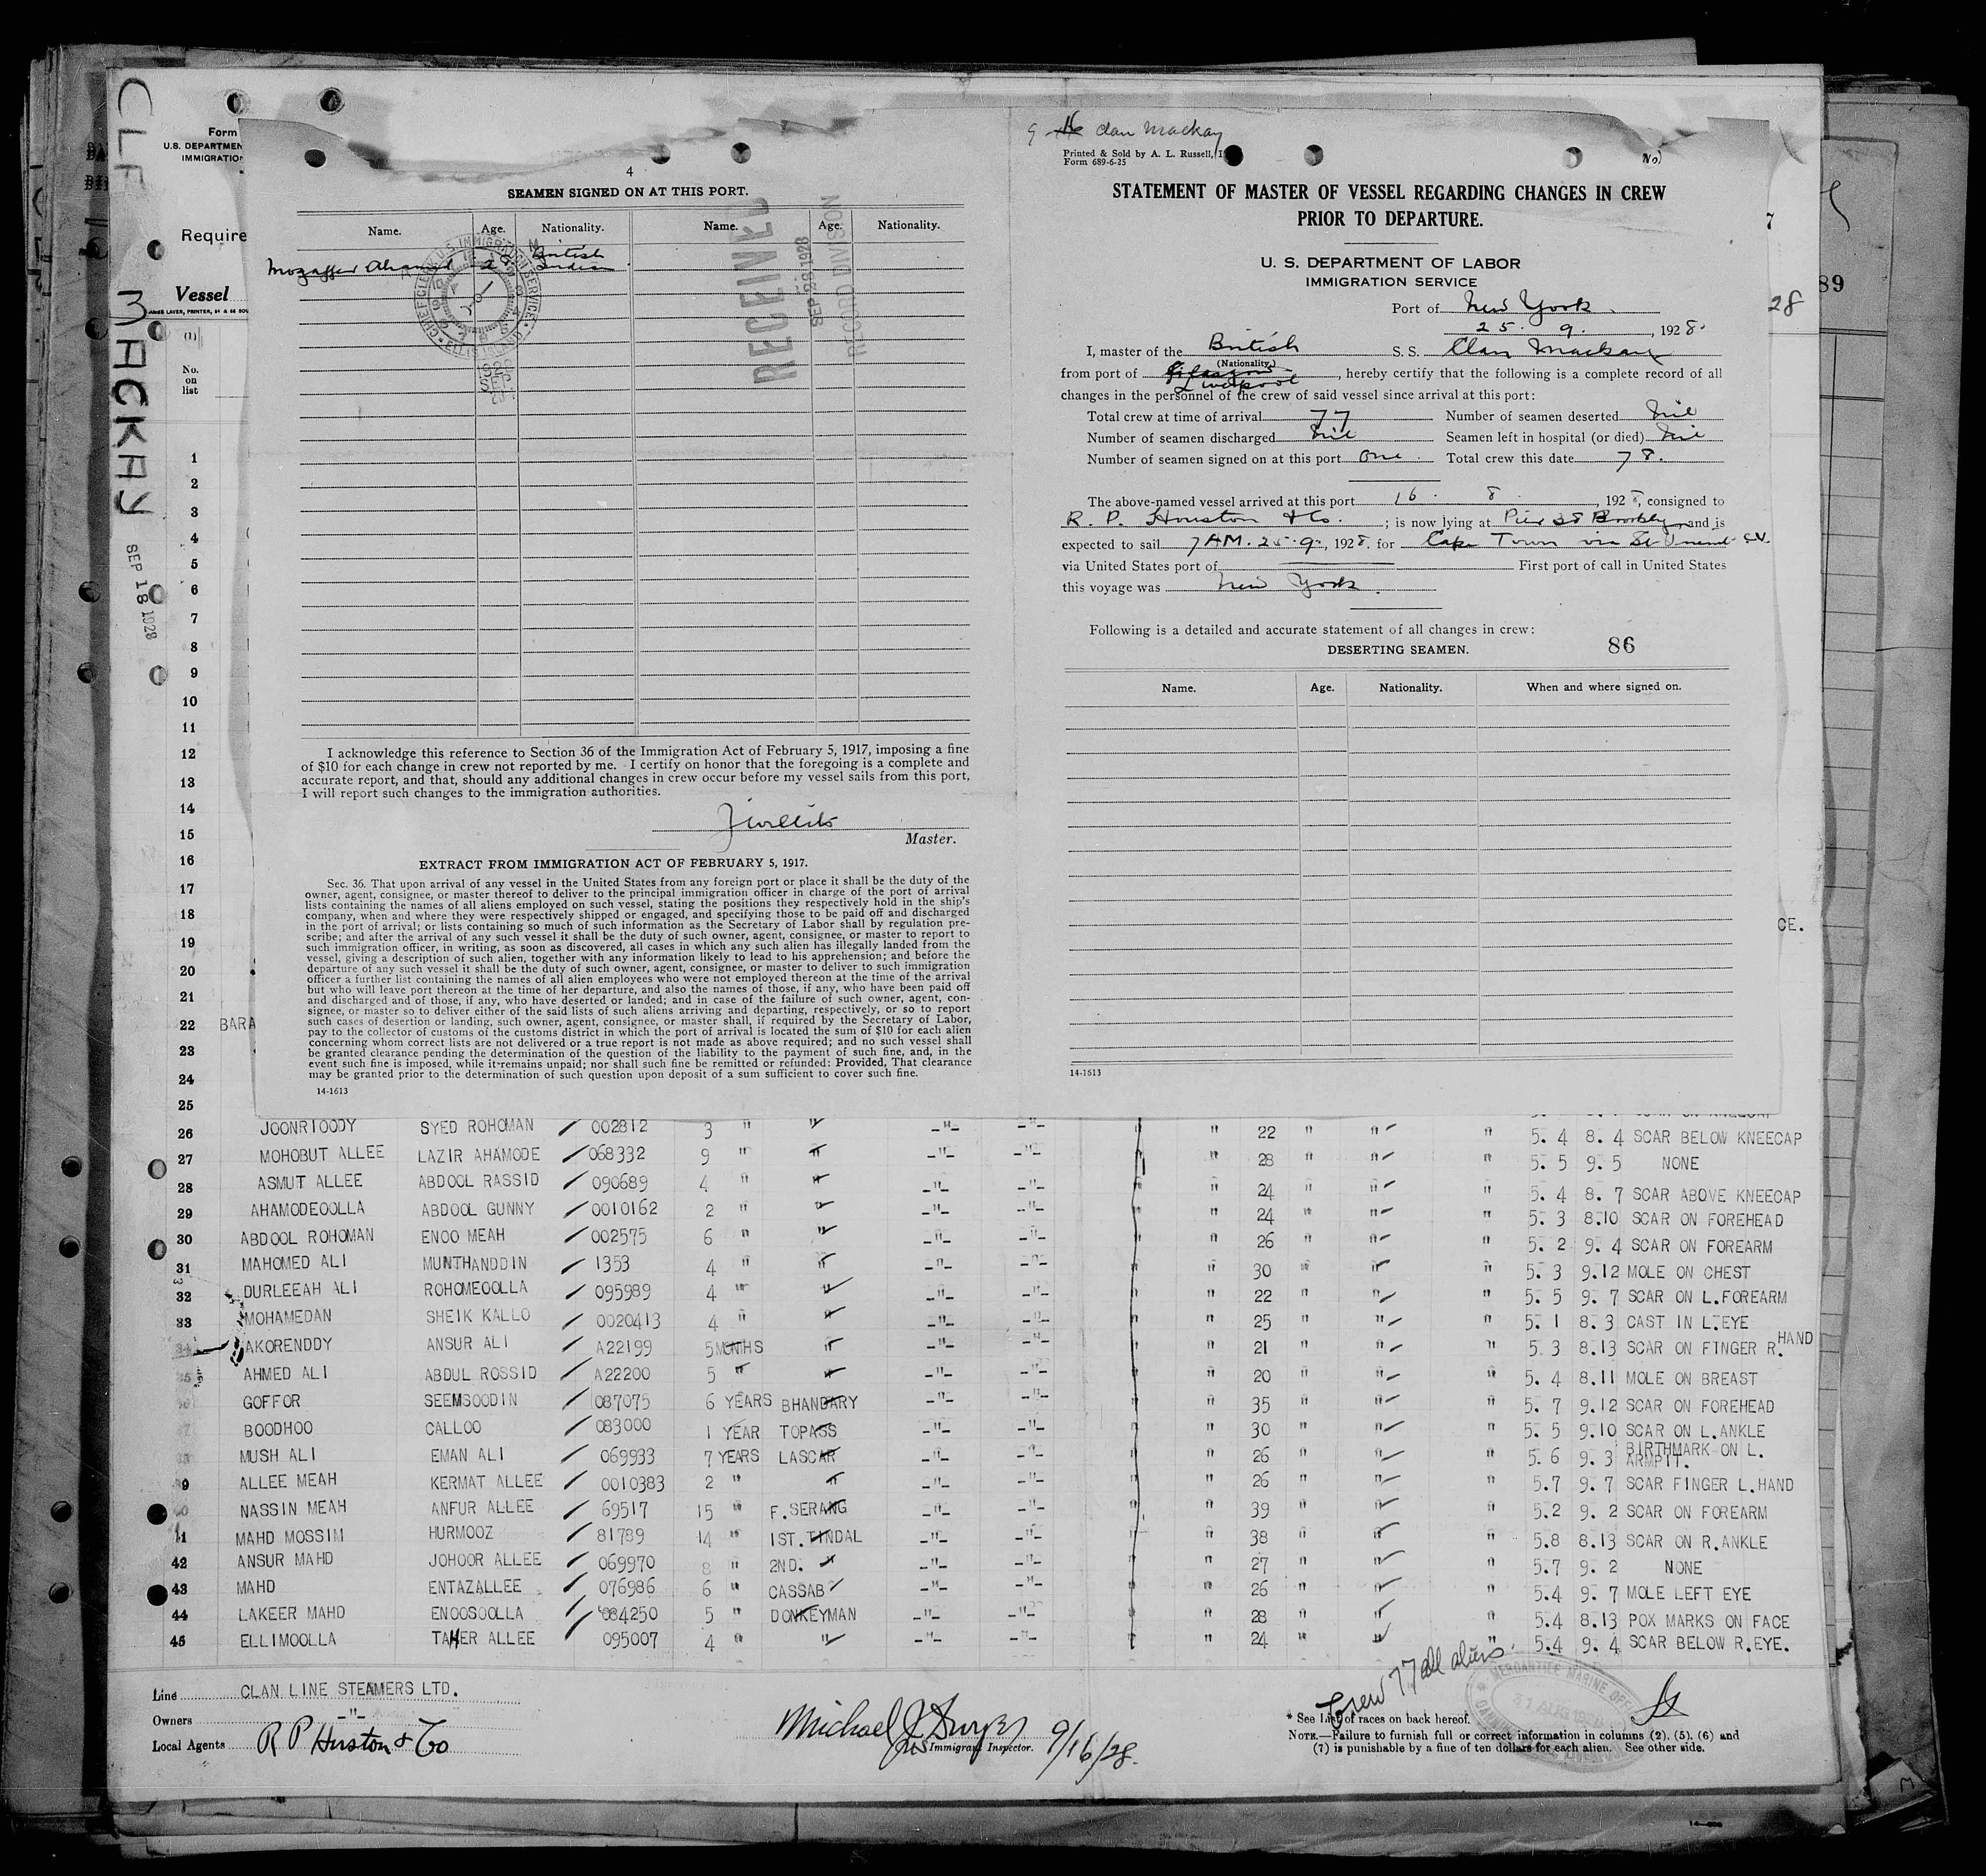 CLF MACKAY
SEP 18 1928
Form
U.S. DEPARTMEN
IMMIGRATION
Require
Vessel
(1)
No.
on
list
4
SEAMEN SIGNED ON AT THIS PORT.
Name. Age. Nationality. Name. Age. Nationality.
Mozaffer Ahamed 28 British
Indian
RECEIVED
SEP 28 1928
RECORD DIVISION
I acknowledge this reference to Section 36 of the Immigration Act of February 5, 1917, imposing a fine
of $10 for each change in crew not reported by me. I certify on honor that the foregoing is a complete and
accurate report, and that, should any additional changes in crew occur before my vessel sails from this port,
I will report such changes to the immigration authorities.
Master.
EXTRACT FROM IMMIGRATION ACT OF FEBRUARY 5, 1917.
Sec. 36. That upon arrival of any vessel in the United States from any foreign port or place it shall be the duty of the
owner, agent, consignee, or master thereof to deliver to the principal immigration officer in charge of the port of arrival
lists containing the names of all aliens employed on such vessel, stating the positions they respectively hold in the ship's
company, when and where they were respectively shipped or engaged, and specifying those to be paid off and discharged
in the port of arrival; or lists containing so much of such information as the Secretary of Labor shall by regulation pre-
scribe; and after the arrival of any such vessel it shall be the duty of such owner, agent, consignee, or master to report to
such immigration officer, in writing, as soon as discovered, all cases in which any such alien has illegally landed from the
vessel, giving a description of such alien, together with any information likely to lead to his apprehension; and before the
departure of any such vessel it shall be the duty of such owner, agent, consignee, or master to deliver to such immigration
officer a further list containing the names of all alien employees who were not employed thereon at the time of the arrival
but who will leave port thereon at the time of her departure, and also the names of those, if any, who have been paid off
and discharged and of those, if any, who have deserted or landed; and in case of the failure of such owner, agent, con-
signee, or master so to deliver either of the said lists of such aliens arriving and departing, respectively, or so to report
such cases of desertion or landing, such owner, agent, consignee, or master shall, if required by the Secretary of Labor,
pay to the collector of customs of the customs district in which the port of arrival is located the sum of $10 for each alien
concerning whom correct lists are not delivered or a true report is not made as above required; and no such vessel shall
be granted clearance pending the determination of the question of the liability to the payment of such fine, and, in the
event such fine is imposed, while it remains unpaid; nor shall such fine be remitted or refunded: Provided, That clearance
may be granted prior to the determination of such question upon deposit of a sum sufficient to cover such fine.
14-1613
Clan Mackay
Printed & Sold by A. L. Russell, I
Form 689-6-25
No.
STATEMENT OF MASTER OF VESSEL REGARDING CHANGES IN CREW
PRIOR TO DEPARTURE.
U. S. DEPARTMENT OF LABOR
IMMIGRATION SERVICE
Port of New York.
25. 9. , 1928.
I, master of the British S. S. Clan Mackay
(Nationality)
from port of Glasgow Liverpool, hereby certify that the following is a complete record of all
changes in the personnel of the crew of said vessel since arrival at this port:
Total crew at time of arrival 77 Number of seamen deserted Nil
Number of seamen discharged Nil Seamen left in hospital (or died) Nil
Number of seamen signed on at this port One. Total crew this date 78.
The above-named vessel arrived at this port 16. 8. , 1928, consigned to
R. P. Houston & Co. ; is now lying at Pier 38 Brooklyn and is
expected to sail 7 AM. 25.9., 1928. for Cape Town via St Vincent C.V.
via United States port of First port of call in United States
this voyage was New York.
Following is a detailed and accurate statement of all changes in crew:
DESERTING SEAMEN. 86
Name. Age. Nationality. When and where signed on.
14-1613
7
89
28
CE.
1
2
3
4
5
6
7
8
9
10
11
12
13
14
15
16
17
18
19
20
21
22 BARA
23
24
25
26 JOONRIOODY SYED ROHOMAN 002812 3 " " -"- -"- " 22 " " " 5. 4 8. 4 SCAR BELOW KNEECAP
27 MOHOBUT ALLEE LAZIR AHAMODE 068332 9 " " -"- -"- " 28 " " " 5. 5 9. 5 NONE
28 ASMUT ALLEE ABDOOL RASSID 090689 4 " " -"- -"- " 24 " " " 5. 4 8. 7 SCAR ABOVE KNEECAP
29 AHAMODEOOLLA ABDOOL GUNNY 0010162 2 " " -"- -"- " 24 " " " 5. 3 8.10 SCAR ON FOREHEAD
30 ABDOOL ROHOMAN ENOO MEAH 002575 6 " " -"- -"- " 26 " " " 5. 2 9. 4 SCAR ON FOREARM
31 MAHOMED ALI MUNTHANDDIN 1353 4 " " -"- -"- " 30 " " " 5. 3 9.12 MOLE ON CHEST
32 DURLEEAH ALI ROHOMEOOLLA 095989 4 " " -"- -"- " 22 " " " 5. 5 9. 7 SCAR ON L.FOREARM
33 MOHAMEDAN SHEIK KALLO 0020413 4 " " -"- -"- " 25 " " " 5. 1 8. 3 CAST IN L.EYE
34 AKORENDDY ANSUR ALI A22199 5 MONTHS " -"- -"- " 21 " " " 5. 3 8.13 SCAR ON FINGER R.HAND
35 AHMED ALI ABDUL ROSSID A22200 5 " " -"- -"- " 20 " " " 5. 4 8.11 MOLE ON BREAST
36 GOFFOR SEEMSOODIN 087075 6 YEARS BHANDARY -"- -"- " 35 " " " 5. 7 9.12 SCAR ON FOREHEAD
37 BOODHOO CALLOO 083000 1 YEAR TOPASS -"- -"- " 30 " " " 5. 5 9.10 SCAR ON L.ANKLE
38 MUSH ALI EMAN ALI 069933 7 YEARS LASCAR -"- -"- " 26 " " " 5. 6 9. 3 BIRTHMARK ON L. ARMPIT.
39 ALLEE MEAH KERMAT ALLEE 0010383 2 " " -"- -"- " 26 " " " 5.7 9. 7 SCAR FINGER L.HAND
40 NASSIN MEAH ANFUR ALLEE 69517 15 " F.SERANG -"- -"- " 39 " " " 5.2 9. 2 SCAR ON FOREARM
41 MAHD MOSSIM HURMOOZ 81789 14 " 1ST.TINDAL -"- -"- " 38 " " " 5.8 8.13 SCAR ON R.ANKLE
42 ANSUR MAHD JOHOOR ALLEE 069970 8 " 2ND. " -"- -"- " 27 " " " 5.7 9. 2 NONE
43 MAHD ENTAZALLEE 076986 6 " CASSAB -"- -"- " 26 " " " 5.4 9. 7 MOLE LEFT EYE
44 LAKEER MAHD ENOOSOOLLA 084250 5 " DONKEYMAN -"- -"- " 28 " " " 5.4 8.13 POX MARKS ON FACE
45 ELLIMOOLLA TAHER ALLEE 095007 4 " " -"- -"- " 24 " " " 5.4 9. 4 SCAR BELOW R.EYE.
Line CLAN LINE STEAMERS LTD.
Owners -"-
Local Agents R P Huston & Co
Michael J Dwyer
Immigrant Inspector. 9/16/28.
Crew 77 all aliens
MERCANTILE MARINE OFFICE
31 AUG 1928
* See List of races on back hereof.
NOTE.—Failure to furnish full or correct information in columns (2), (5), (6) and
(7) is punishable by a fine of ten dollars for each alien. See other side.